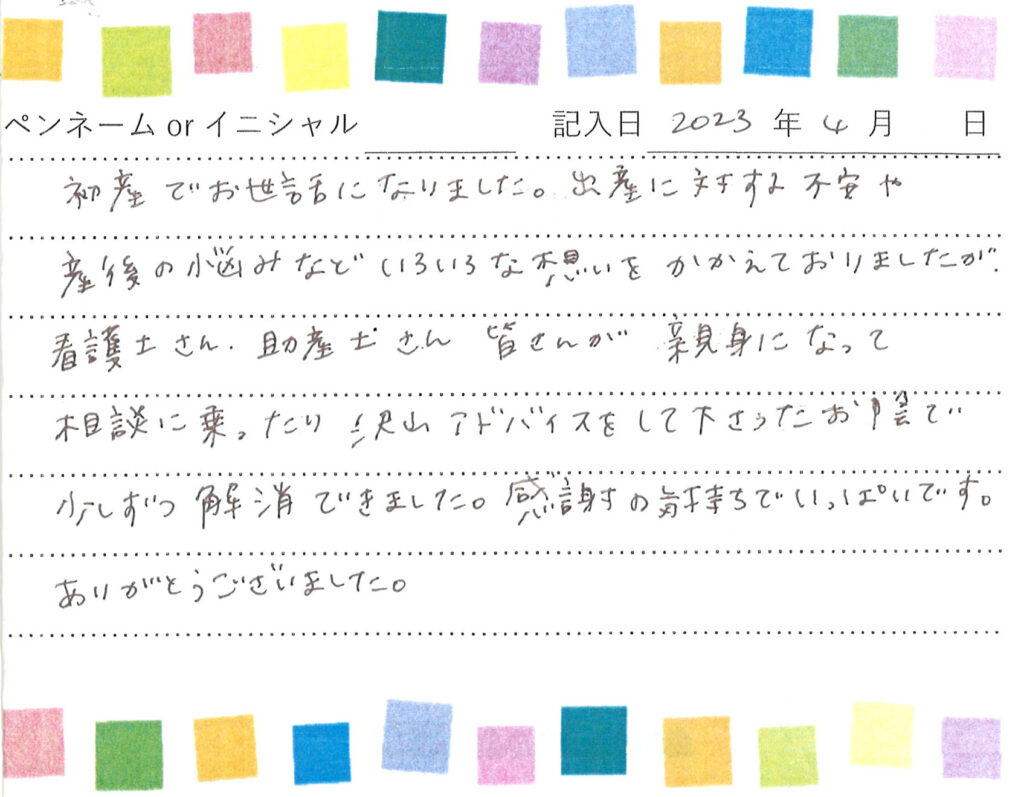 ペンネーム or イニシャル 記入日 2023 年 4 月 日
初産でお世話になりました。出産に対する不安や
産後の悩みなど いろいろな想いを かかえておりましたが、
看護士さん、助産士さん 皆さんが 親身になって
相談に乗ったり 沢山アドバイスをして下さったお陰で
少しずつ 解消できました。感謝の気持ちでいっぱいです。
ありがとうございました。